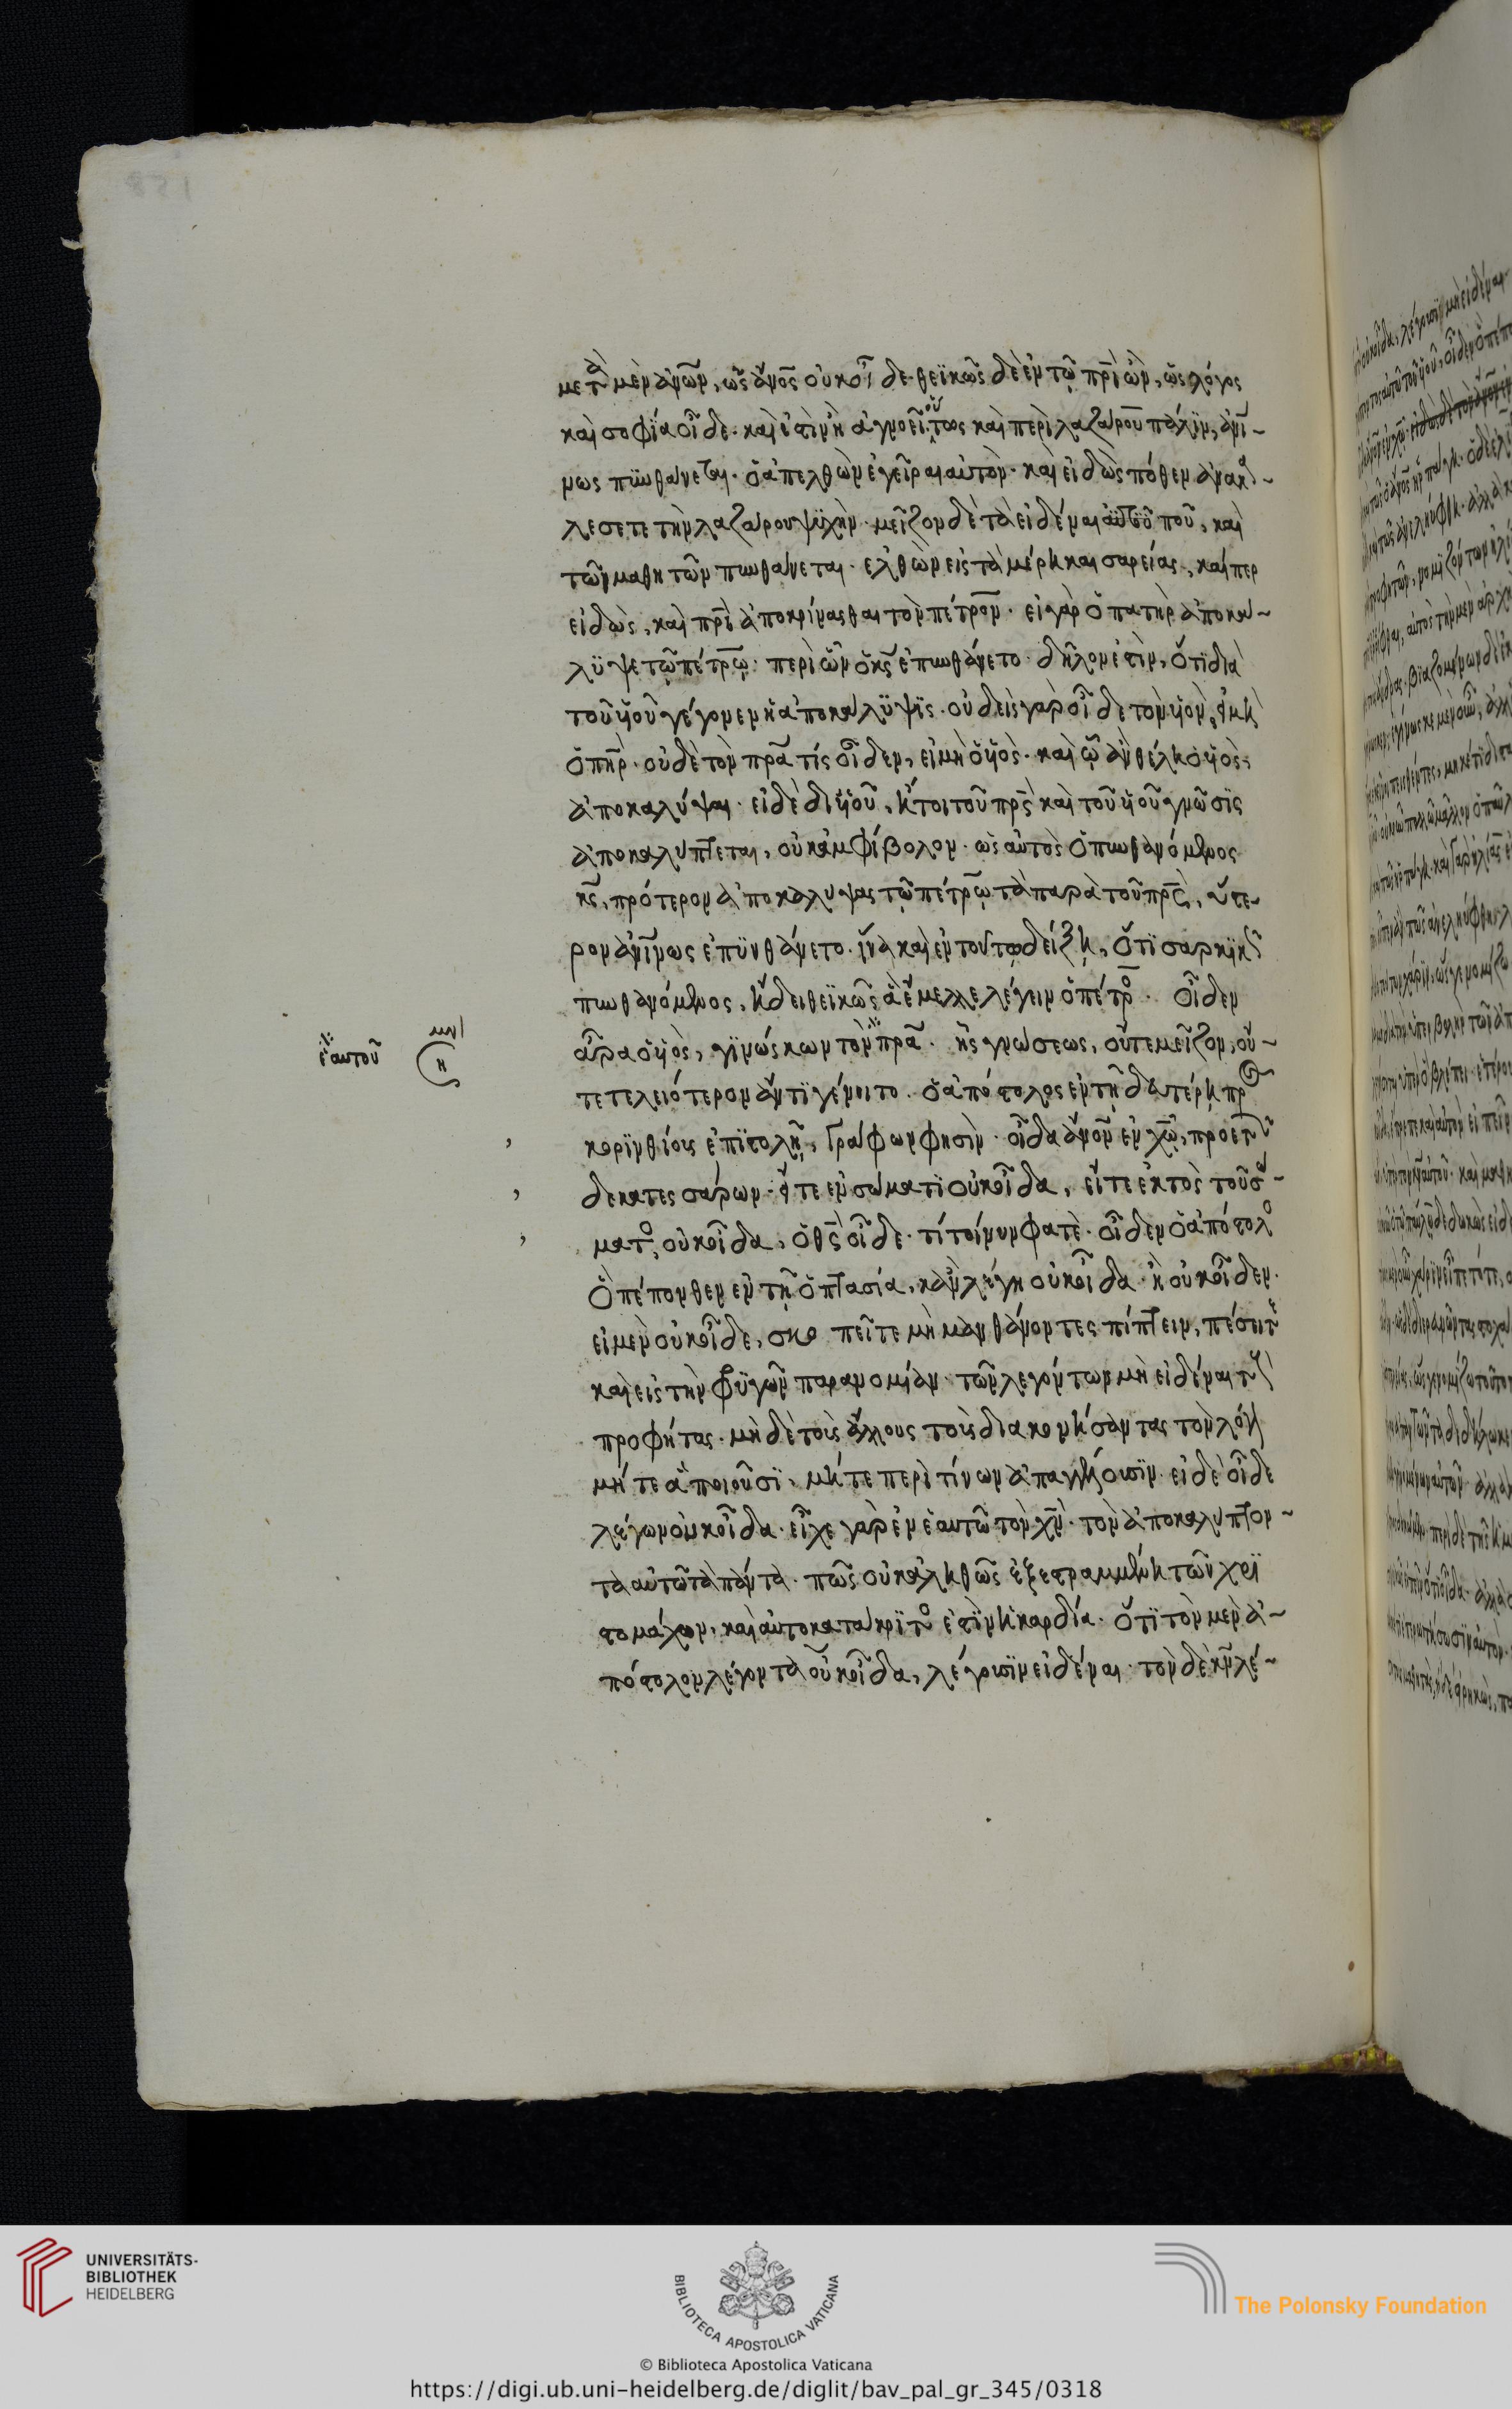 μετὰ μὲν ἀνῶν, ὡς ἄνος οὐκ οἶδε· θεϊκῶς δὲ ἐν τῷ πρὶ ὢν, ὡς λόγος
καὶ σοφία οἶδε· καὶ ἐστὶν ἃ ἀγνοεῖ· οὕτως καὶ περὶ λαζάρου πάλιν, ἀνί-
νως πυνθάνεται· ὁ ἀπελθὼν ἐγεῖραι αὐτὸν· καὶ εἰδὼς πόθεν ἀνακα-
λέσεται τὴν λαζάρου ψυχήν· μεῖζον δὲ τὰ εἰδέναι ποῦ, καὶ
τῶν μαθητῶν πυνθάνεται· ἐλθὼν εἰς τὰ μέρη καισαρείας, καίπερ
εἰδὼς, καὶ πρὶν ἀποκρίνασθαι τὸν πέτρον· εἰ γὰρ ὁ πατὴρ ἀπεκά-
λυψε τῷ πέτρῳ· περὶ ὧν ὁ κς ἐπυνθάνετο· δῆλον ἐστὶν, ὅτι διὰ
τοῦ υἱοῦ γέγονεν ἡ ἀποκάλυψις· οὐδεὶς γὰρ οἶδε τὸν υἱὸν, εἰ μὴ
ὁ πηρ· οὐδὲ τὸν πρα τίς οἶδεν, εἰ μὴ ὁ υἱὸς· καὶ ᾧ ἂν θέλη ὁ υἱὸς,
ἀποκαλύψαι· εἰ δὲ δι' υἱοῦ, ἤτοι τοῦ πρς καὶ τοῦ υἱοῦ γνῶσις
ἀποκαλύπτεται, οὐκ ἀμφίβολον· ὡς αὐτὸς ὁ πυνθανόμενος
κς, πρότερον ἀποκαλύψας τῷ πέτρῳ τὰ παρὰ τοῦ πρς, ὕστε-
ρον ἀνίνως ἐπυνθάνετο· ἵνα καὶ ἐν τούτῳ δείξῃ, ὅτι σαρκικῶς
πυνθανόμενος, ᾔδει θεϊκῶς ἃ ἔμελλε λέγειν ὁ πέτρος. οἶδεν
ἄρα ὁ υἱὸς, γινώσκων τὸν πρα· ἧς γνώσεως, οὔτε μεῖζον, οὔ-
τε τελειότερον ἄν τι γένοιτο. ὁ ἀπόστολος ἐν τῇ δευτέρᾳ πρὸς
κορινθίους ἐπιστολῇ, γράφων φησὶν· οἶδα ἄνον ἐν χῷ, πρὸ ἐτῶν
δεκατεσσάρων· εἴτε ἐν σώματι οὐκ οἶδα, εἴτε ἐκτὸς τοῦ σώ-
ματος, οὐκ οἶδα, ὁ θς οἶδε· τί τοίνυν φατὲ· οἶδεν ὁ ἀπόστολος
ὃ πέπονθεν ἐν τῇ ὀπτασία, κἂν λέγη οὐκ οἶδα· ἢ οὐκ οἶδεν·
εἰ μὲν οὐκ οἶδε, σκοπεῖτε μὴ μανθάνοντες πίπτειν, πέσητε
καὶ εἰς τὴν φρυγῶν παρανομίαν· τῶν λεγόντων μὴ εἰδέναι τοὺς
προφήτας· μὴ δὲ τοὺς ἄλλους τοὺς διακονήσαντας τὸν λόγον
μήτε ἃ ποιοῦσι, μήτε περὶ τίνων ἀπαγγέλλουσιν· εἰ δὲ οἶδε
λέγων οὐκ οἶδα· εἶχε γὰρ ἐν ἑαυτῷ τὸν χν· τὸν ἀποκαλύπτον-
τα αὐτῷ τὰ πάντα· πῶς οὐκ ἀληθῶς ἐξεστραμμένη τῶν χρι
στομάχων, καὶ αὐτοκατάκριτος ἐστὶν ἡ καρδία· ὅτι τὸν μὲν ἀ-
πόστολον λέγοντα οὐκ οἶδα, λέγουσιν εἰδέναι· τὸν δὲ κν λέ-
ἑαυτοῦ
UNIVERSITÄTS-
BIBLIOTHEK
HEIDELBERG
BIBLIOTECA APOSTOLICA VATICANA
© Biblioteca Apostolica Vaticana
The Polonsky Foundation
https://digi.ub.uni-heidelberg.de/diglit/bav_pal_gr_345/0318